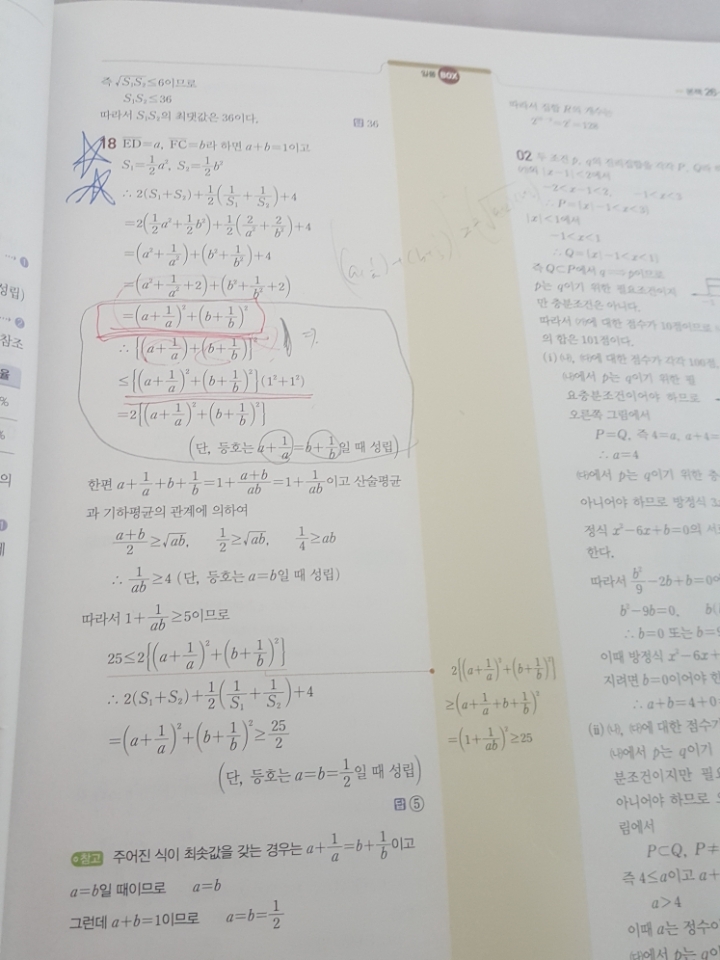 즉 √S₁S₂≤6이므로
S₁S₂≤36
따라서 S₁S₂의 최댓값은 36이다.
답 36
18 ED=a, FC=b라 하면 a+b=1이고
S₁=1/2a², S₂=1/2b²
∴ 2(S₁+S₂)+1/2(1/S₁+1/S₂)+4
=2(1/2a²+1/2b²)+1/2(2/a²+2/b²)+4
=(a²+1/a²)+(b²+1/b²)+4
=(a²+1/a²+2)+(b²+1/b²+2)
=(a+1/a)²+(b+1/b)²
∴ {(a+1/a)+(b+1/b)}²
≤{(a+1/a)²+(b+1/b)²}(1²+1²)
=2{(a+1/a)²+(b+1/b)²}
(단, 등호는 a+1/a=b+1/b일 때 성립)
한편 a+1/a+b+1/b=1+(a+b)/ab=1+1/ab이고 산술평균
과 기하평균의 관계에 의하여
(a+b)/2≥√ab, 1/2≥√ab, 1/4≥ab
∴ 1/ab≥4 (단, 등호는 a=b일 때 성립)
따라서 1+1/ab≥5이므로
25≤2{(a+1/a)²+(b+1/b)²}
∴ 2(S₁+S₂)+1/2(1/S₁+1/S₂)+4
=(a+1/a)²+(b+1/b)²≥25/2
(단, 등호는 a=b=1/2일 때 성립)
답 ⑤
참고 주어진 식이 최솟값을 갖는 경우는 a+1/a=b+1/b이고
a=b일 때이므로 a=b
그런데 a+b=1이므로 a=b=1/2
일등 BOX
2{(a+1/a)²+(b+1/b)²}
≥(a+1/a+b+1/b)²
=(1+1/ab)²≥25
본책 26
따라서 집합 B의 개수는
02 두 조건 p, q의 진리집합을 각각 P, Q라
|x-1|<2에서
-2<x-1<2, -1<x<3
∴ P={x|-1<x<3}
|x|<1에서
-1<x<1
∴ Q={x|-1<x<1}
즉 Q⊂P에서
p는 q이기 위한 필요조건이지
만 충분조건은 아니다.
따라서 ㈎에 대한 점수가 10점이므로
의 합은 101점이다.
(ⅰ) ㈏, ㈐에 대한 점수가 각각 100점,
㈏에서 p는 q이기 위한 필
요충분조건이어야 하므로
오른쪽 그림에서
P=Q, 즉 4=a, a+4=
∴ a=4
㈐에서 p는 q이기 위한 충
아니어야 하므로 방정식
정식 x²-6x+b=0의 서
한다.
따라서 b²/9-2b+b=0
b²-9b=0,
∴ b=0 또는 b=9
이때 방정식 x²-6x+
지려면 b=0이어야 한
∴ a+b=4+0
(ⅱ) ㈏, ㈐에 대한 점수가
㈏에서 p는 q이기
분조건이지만 필요
아니어야 하므로 오
림에서
P⊂Q, P≠
즉 4≤a이고 a+
a>4
이때 a는 정수이
㈐에서 p는 q이